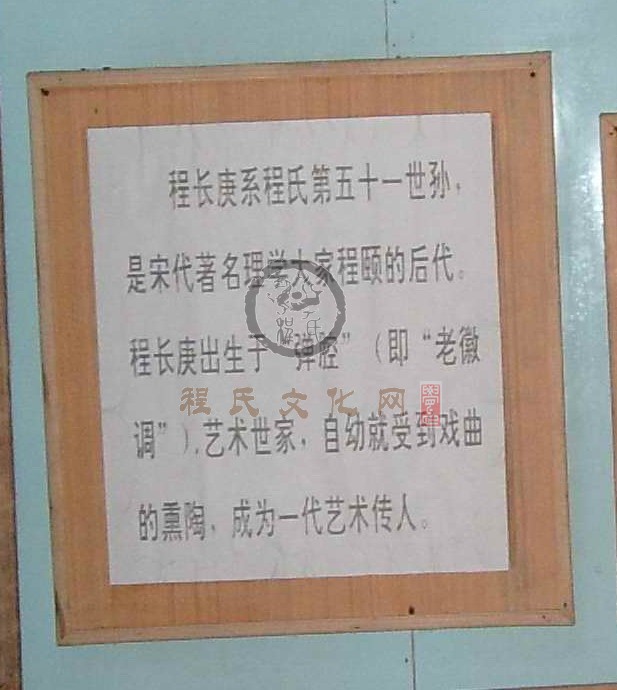 程长庚系程氏第五十一世孙，
是宋代著名理学大家程颐的后代。
程长庚出生于“弹腔”（即“老徽
调”）.艺术世家，自幼就受到戏曲
的熏陶，成为一代艺术传人。
程氏文化网